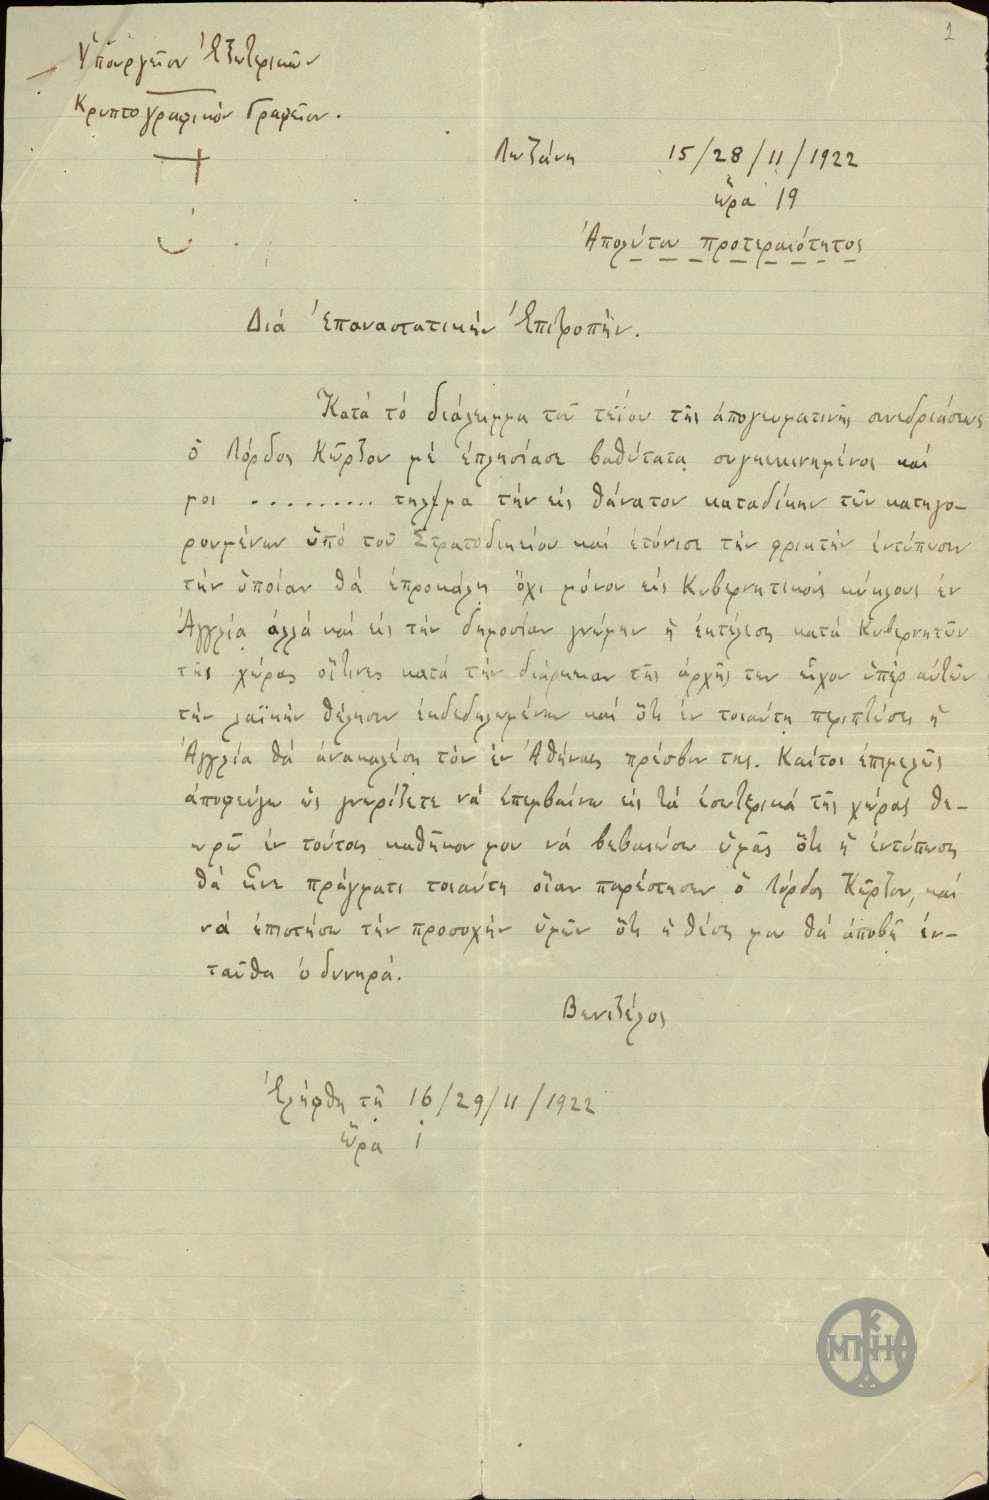 1
Ὑπουργεῖον Ἐξωτερικῶν
Κρυπτογραφικόν Γραφεῖον.
Λωζάνη 15/28/11/1922
ὥρα 19
Ἀπολύτου προτεραιότητος
Διά Ἐπαναστατικήν Ἐπιτροπήν.
Κατά τό διάλειμμα τοῦ τεΐου τῆς ἀπογευματινῆς συνεδριάσεως
ὁ Λόρδος Κῶρζον μέ ἐπλησίασε βαθύτατα συγκεκινημένος καί
μοι .......... τηλ/μα τήν εἰς θάνατον καταδίκην τῶν κατηγο-
ρουμένων ὑπό τοῦ Στρατοδικείου καί ἐτόνισε τήν φρικτήν ἐντύπωσιν
τήν ὁποίαν θά ἐπροκάλῃ ὄχι μόνον εἰς Κυβερνητικούς κύκλους ἐν
Ἀγγλίᾳ ἀλλά καί εἰς τήν δημοσίαν γνώμην ἡ ἐκτέλεσις κατά Κυβερνητῶν
τῆς χώρας οἵτινες κατά τήν διάρκειαν τῆς ἀρχῆς των εἶχον ὑπέρ αὐτῶν
τήν λαϊκήν θέλησιν ἐκδεδηλωμένην καί ὅτι ἐν τοιαύτῃ περιπτώσει ἡ
Ἀγγλία θά ἀνακαλέσῃ τόν ἐν Ἀθήναις πρέσβυν της. Καίτοι ἐπιμελῶς
ἀποφεύγω ὡς γνωρίζετε νά ἐπεμβαίνω εἰς τά ἐσωτερικά τῆς χώρας θε-
ωρῶ ἐν τούτοις καθῆκον μου νά βεβαιώσω ὑμᾶς ὅτι ἡ ἐντύπωσις
θά εἶνε πράγματι τοιαύτη οἵαν παρέστησεν ὁ Λόρδος Κῶρζον, καί
νά ἐπιστήσω τήν προσοχήν ὑμῶν ὅτι ἡ θέσις μου θά ἀποβῇ ἐν-
ταῦθα ὀδυνηρά.
Βενιζέλος
Ἐλήφθη τῇ 16/29/11/1922
ὥρᾳ 1
ΜΠΗ